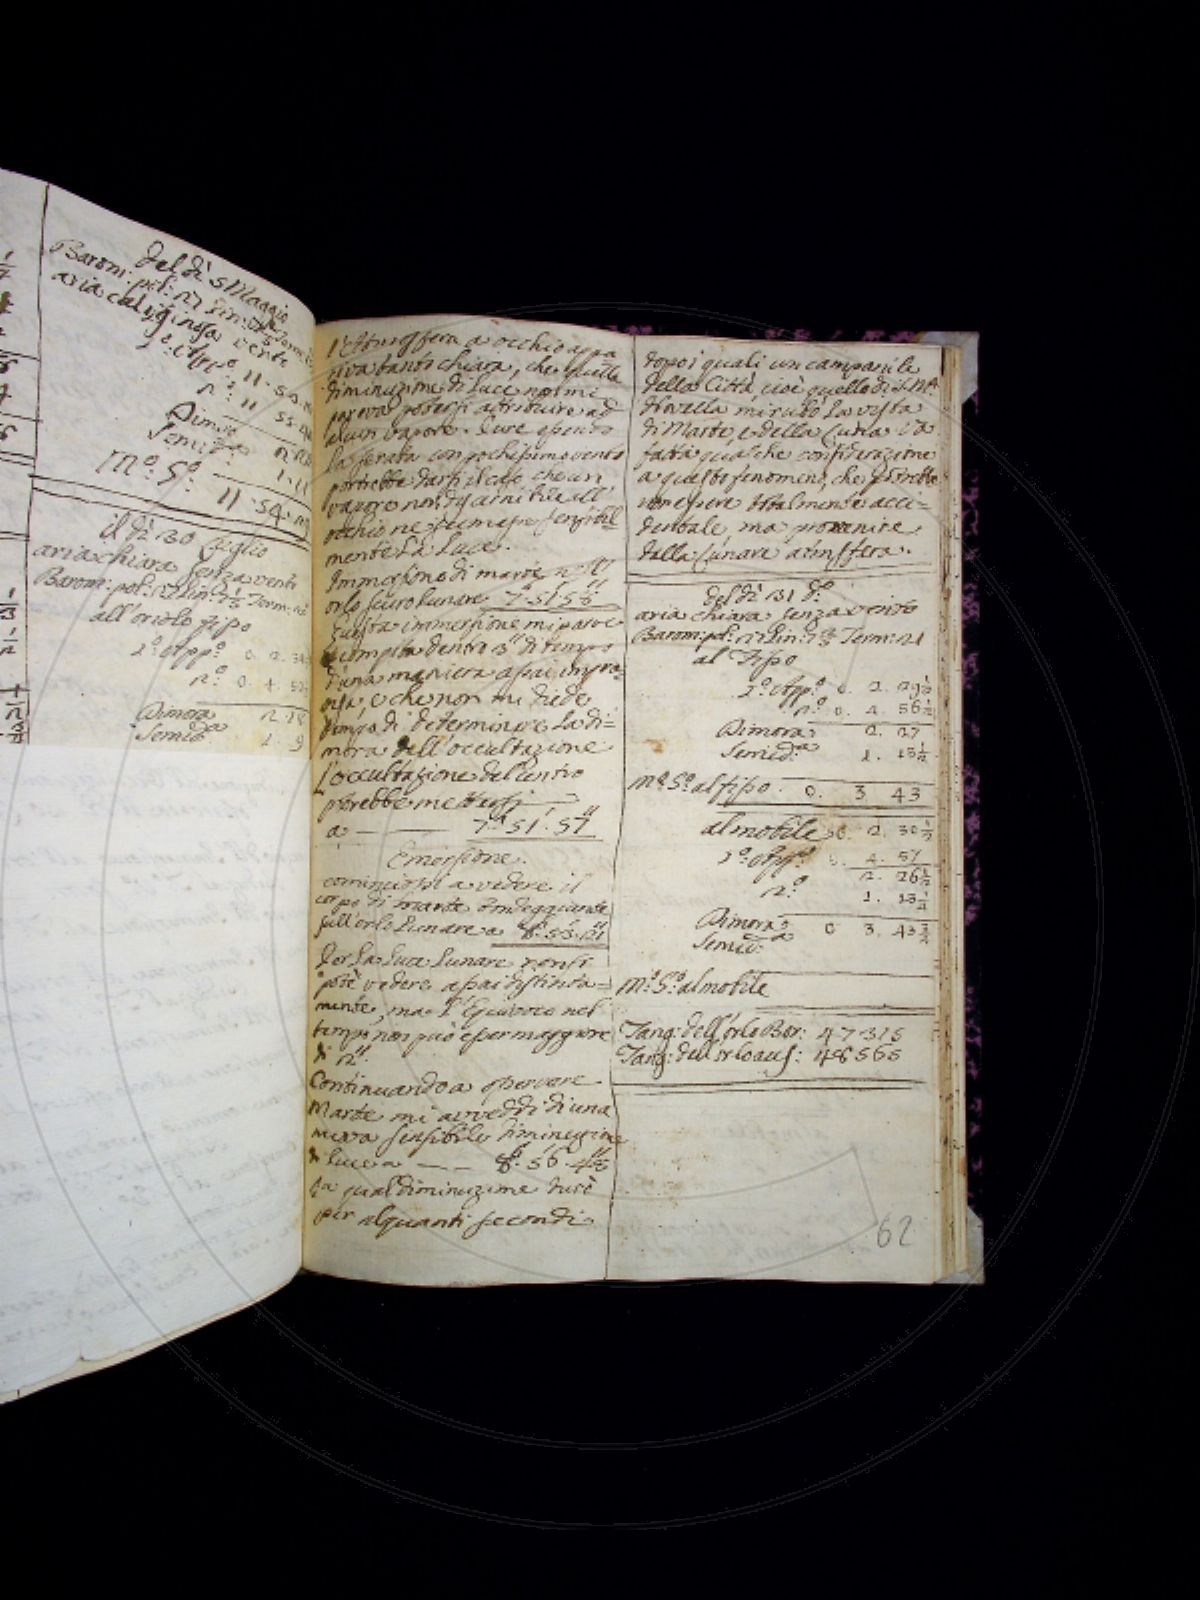 del dì 5 Maggio
Barom: pol: 27 lin:
aria caliginosa vento
1.º App.º 11. 54.
2.º 11 55.
Dimora
Semid.ª 1. 11
M.º S.º 11. 54.
il dì 30 Luglio
aria chiara senza vento
Barom: pol: 27 lin: 7⅓ Term:
all'oriolo fisso
1.º App.º 0. 2.
2.º 0. 4.
Dimora 2. 18
Semid.ª 1. 9
l'Atmosfera a occhio appa
riva tanto chiara, che quella
diminuzione di luce non mi
pareva potersi attribuire ad
alcun vapore. Pure essendo
la serata con pochissimo vento
potrebbe darsi il caso che un
vapore non discernibile all'
occhio ne scemasse sensibil
mente la luce.
Immersione di marte nell'
orlo scuro lunare 7. 51. 58
Questa immersione mi parve
compita dentro 3" di tempo
d'una maniera assai improv
visa, e che non mi diede
tempo di determinare la di=
mora dell'occultazione
L'occultazione del centro
potrebbe mettersi
a — 7. 51. 57
Emersione.
cominciossi a vedere il
corpo di marte ondeggiante
sull'orlo lunare a 8. 53. 21
Per la luce lunare non si
potè vedere assai distinta=
mente, ma l'Equivoco nel
tempo non può esser maggiore
di 2".
Continuando a osservare
Marte mi avveddi di una
nuova sensibile diminuzione
di luce a — 8. 56. 48
La qual diminuzione durò
per alquanti secondi
dopo i quali un campanile
della Città cioè quello di S. M.ª
Novella mi rubò la vista
di Marte, e della Luna. Và
fatta qualche considerazione
a questo fenomeno, che potrebbe
non essere totalmente acci=
dentale, ma provenire
dalla Lunare atmosfera.
del dì 31 d.º
aria chiara senza vento
Barom: pol: 27 lin: 7⅓ Term: 21
al Fisso
1.º App.º 0. 2. 29½
2.º 0. 4. 56½
Dimora 2. 27
Semid.ª 1. 13½
M.º S.º al fisso 0. 3 43
al mobile 0. 2. 30½
1.º App.º 0. 4. 57
2.º 2. 26½
1. 13¼
Dimora 0 3. 43¾
Semid.ª
M.º S.º al mobile
Tang: dell'orlo Bor: 47375
Tang: dell'orlo aus: 48565
62